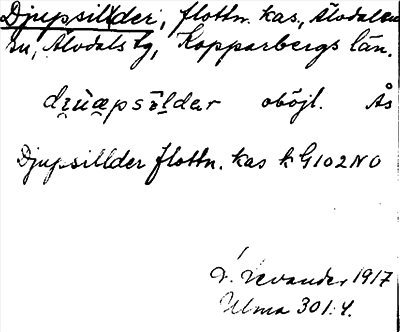 Djupsillder, flottn. kas, Älvdalens
sn, Älvdals tg, Kopparbergs län.
oböjl. Ås
Djupsillder flottn. kas k G102NO
L. Levander 1917
Ulma 301:4.